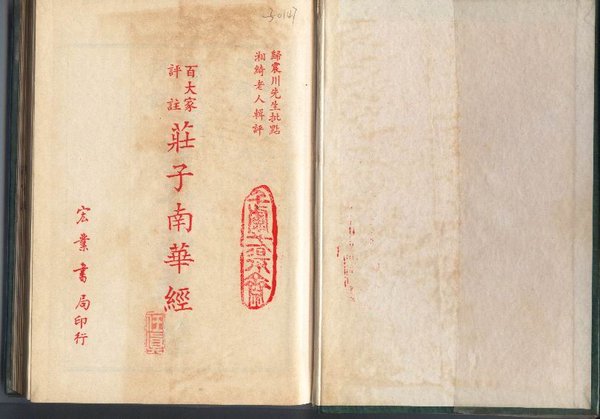 3-0127
歸震川先生批點
湘綺老人輯評
百大家
評註
莊子南華經
宏業書局印行